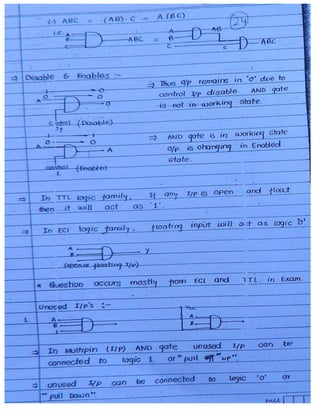 (-) ABC = (AB)·C = A(BC)
24
i.e. A B C ABC = A B AB C ABC
⇒ Disable & Enables :-
⇒ This o/p remains in '0' due to
control I/p disable. AND gate
is not in working state.
(Disable)
⇒ AND gate is in working state
o/p is changing in Enabled
state.
control (Enable)
1
⇒ In TTL logic family, If any I/p is open and float
then it will act as '1'.
⇒ In ECL logic family, floating input will act as logic '0'
A B Y
(open or floating I/p)
* Question occurs mostly from ECL and TTL in Exam.
Unused I/p's :-
1. A B 1 Vcc A B
⇒ In Multipin (I/P) AND gate unused I/p can be
connected to logic 1 or "pull up".
⇒ unused I/p can be connected to logic '0' or
"pull Down"
PAGE